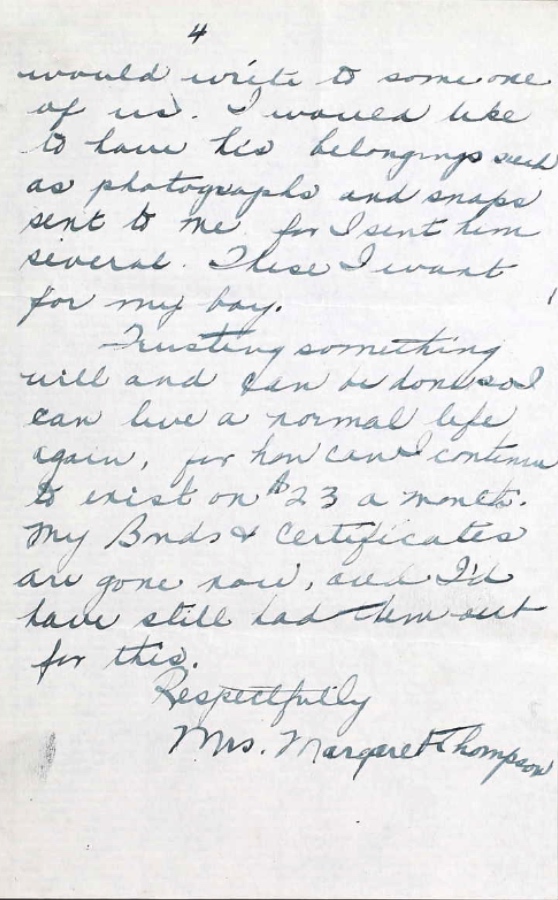 4
would write to some one
of us. I would like
to have his belongings such
as photographs and snaps
sent to me for I sent him
several. These I want
for my boy.
Trusting something
will and can be done so I
can live a normal life
again, for how can I continue
to exist on $23 a month.
My Bonds & Certificates
are gone now, and I'd
have still had them but
for this.
Respectfully
Mrs. Margaret Thompson